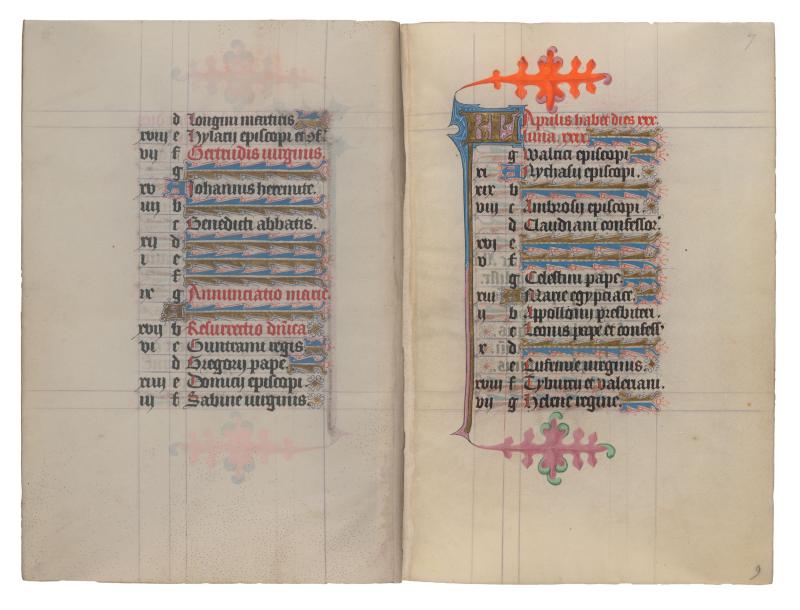 d Longini martiris
xviij e Hylarij episcopi et 9f.
vij f Gertrudis uirginis
g
xv A Johannis heremite.
iiij b
c Benedicti abbatis.
xij d
i e
f
ix g Annunciatio marie
A
xvij b Resurrectio dn̄ica
vi c Guntrami regis
d Gregorij pape
xiiij e Domicij episcopi.
iij f Sabine uirginis.
7
KL Aprilis habet dies xxx.
luna. xxx.
g Walrici episcopi
xi A Nychasij episcopi.
xix b
viij c Ambrosij episcopi.
d Claudiani confessor
xvj e
v f
g Celestini pape
xiij A Marie egypciace.
ij b Appollonij presbiteri.
c Leonis pape et confess
x d
e Eufemie uirginis.
xviij f Tyburcij et valeriani.
vij g Helene regine.
9